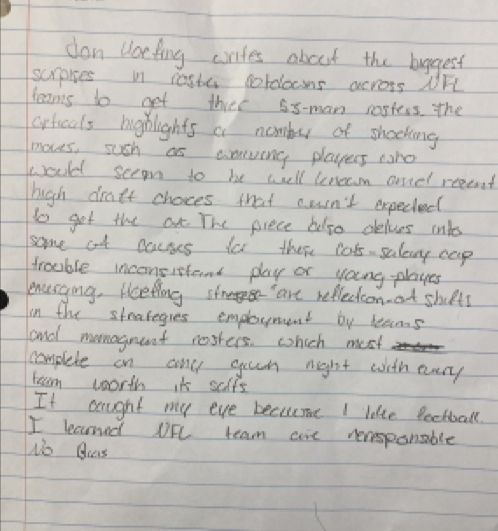 Jon Hoefling writes about the biggest
surpises in roster cutdowns across NFL
teams to get thier 53-man rosters. The
articals highlights a number of shocking
moves, such as waiving players who
would seem to be well known and recent
high draft choices that weren't expected
to get the cut. The piece also delves into
some of causes for these cuts-salary cap
trouble inconsistant play or young-players
emerging. Hoefling are reflection of shifts
in the strategies employment by teams
and managment rosters. which must
complete on any given night with every
team worth its salts
It caught my eye because I like football.
I learned NFL team are
No Bias